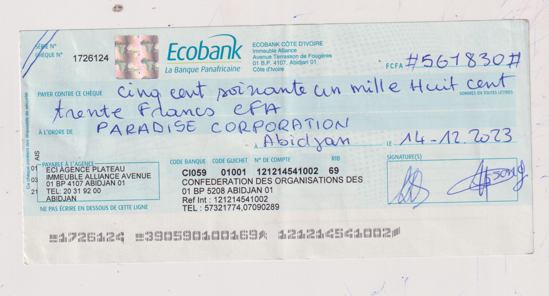 SÉRIE N°
CHÈQUE N° 1726124
Ecobank
La Banque Panafricaine
ECOBANK CÔTE D'IVOIRE
Immeuble Alliance
Avenue Terrasson de Fougères
01 B.P. 4107, Abidjan 01
Côte d'Ivoire
FCFA #561830#
PAYER CONTRE CE CHÈQUE cinq cent soixante un mille Huit cent
SOMMES EN TOUTES LETTRES
trente Francs CFA
À L'ORDRE DE PARADISE CORPORATION
Abidjan LE 14-12.2023
PAYABLE À L'AGENCE
ECI AGENCE PLATEAU
IMMEUBLE ALLIANCE AVENUE
01 BP 4107 ABIDJAN 01
TEL: 20 31 92 00
ABIDJAN
CODE BANQUE CODE GUICHET N° DE COMPTE RIB
CI059 01001 121214541002 69
CONFEDERATION DES ORGANISATIONS DES
01 BP 5208 ABIDJAN 01
Ref Int : 121214541002
TEL : 57321774,07090289
SIGNATURE(S)
NE PAS ÉCRIRE EN DESSOUS DE CETTE LIGNE
1726124 390590100169 121214541002